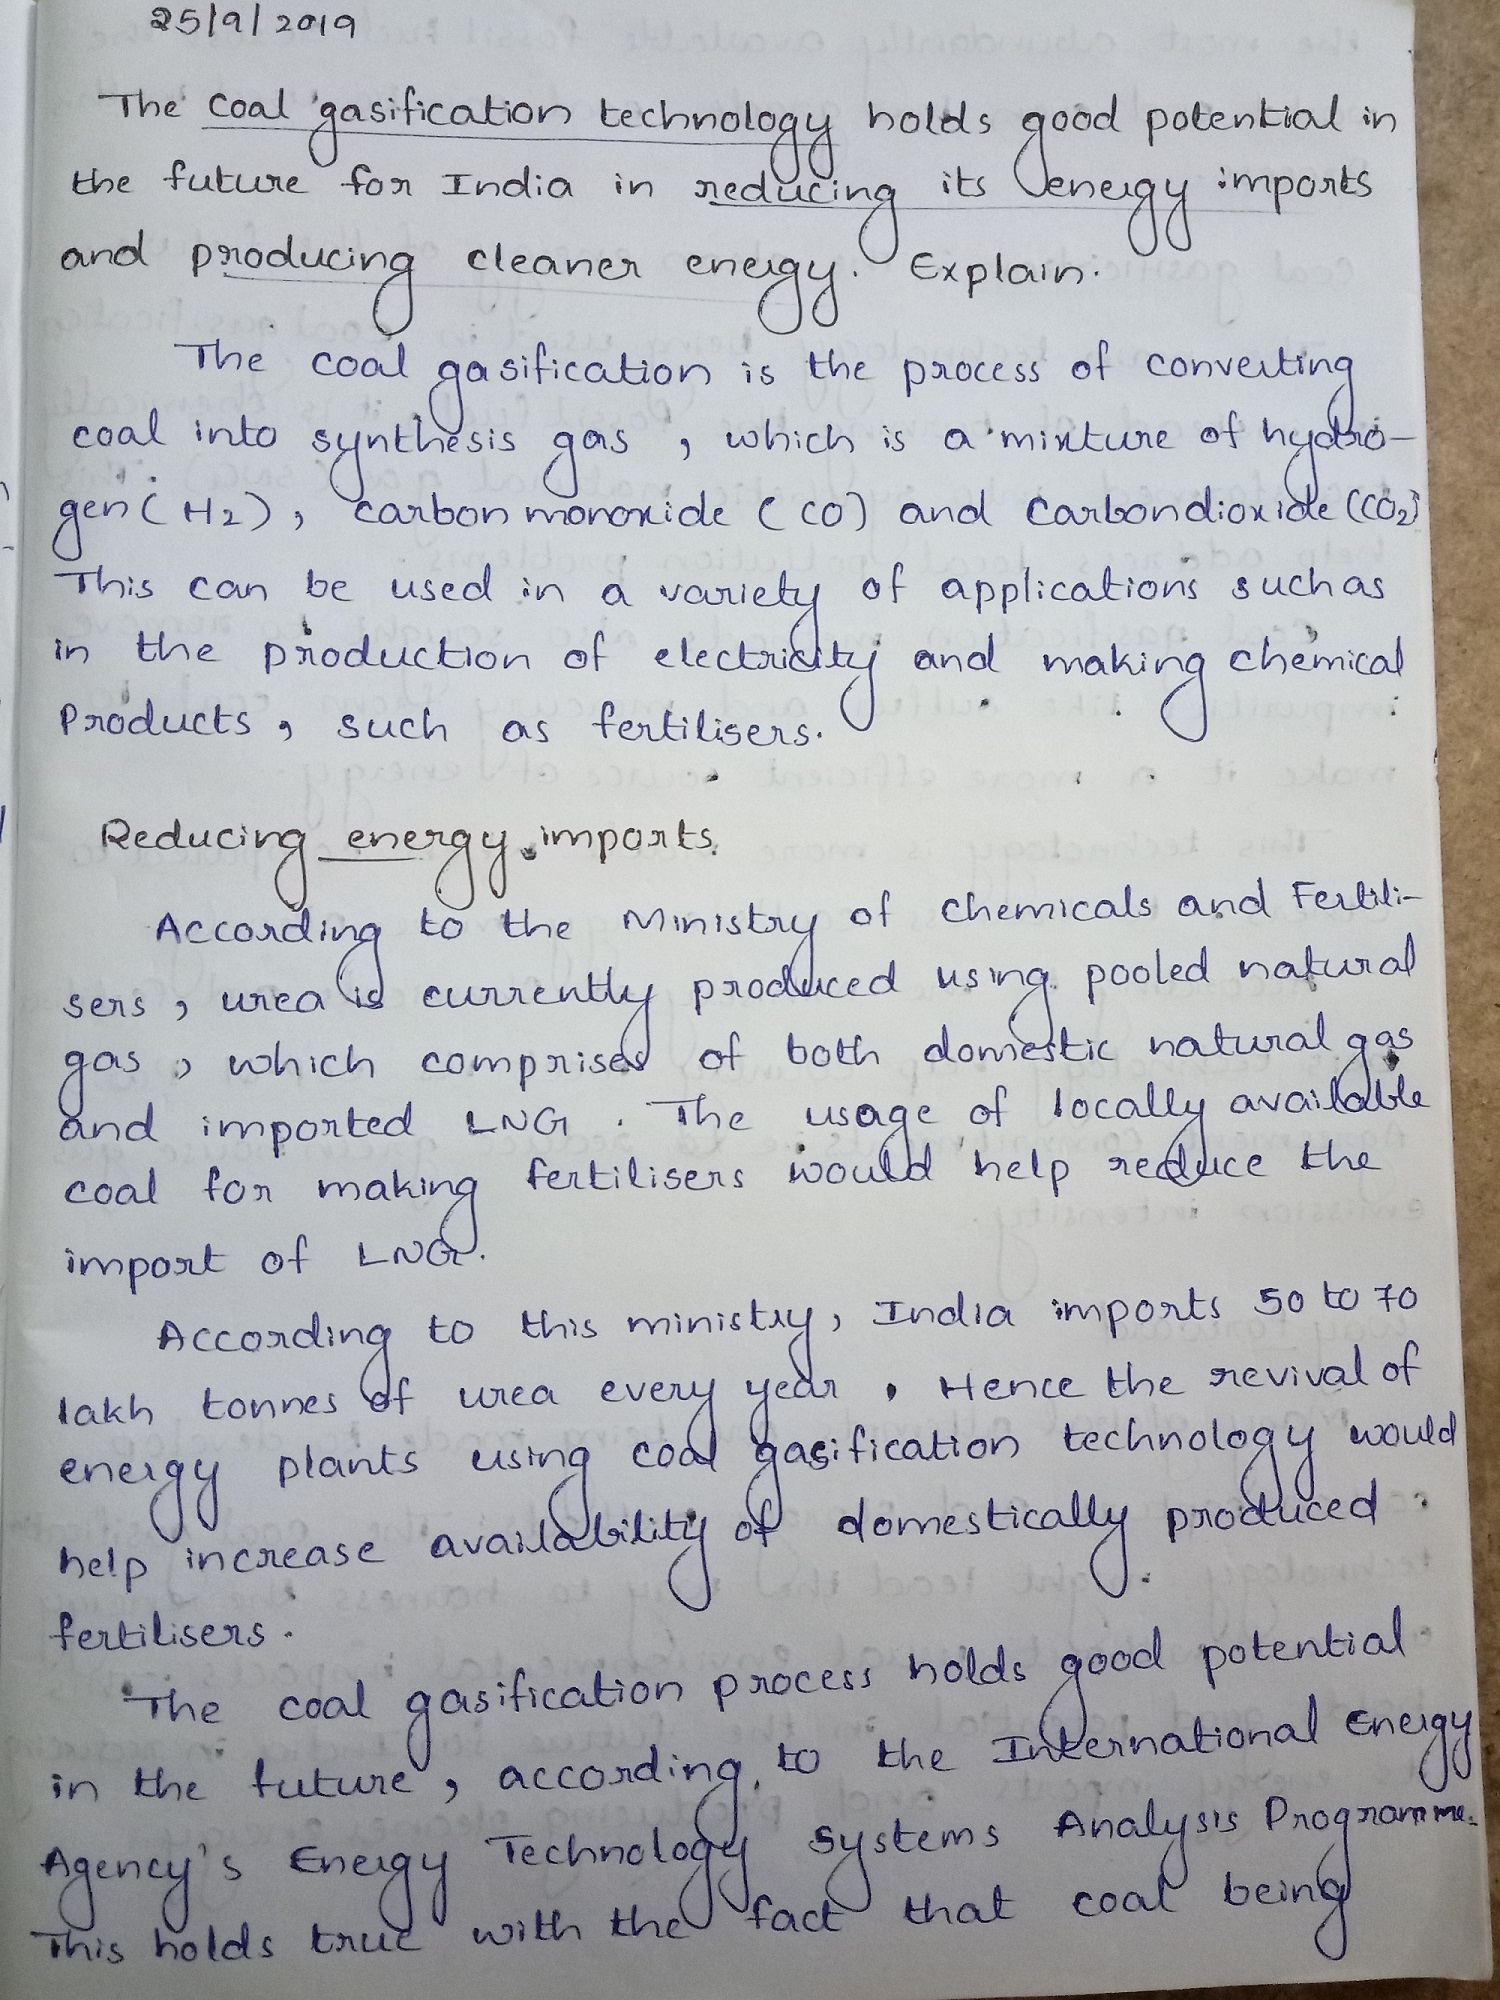 25/9/2019
The coal gasification technology holds good potential in
the future for India in reducing its energy imports
and producing cleaner energy. Explain.
The coal gasification is the process of converting
coal into synthesis gas, which is a mixture of hydro-
gen (H2), carbon monoxide (CO) and Carbondioxide (CO2)
This can be used in a variety of applications such as
in the production of electricity and making chemical
Products, such as fertilisers.
Reducing energy imports.
According to the Ministry of chemicals and Fertili-
sers, urea is currently produced using pooled natural
gas, which comprises of both domestic natural gas
and imported LNG. The usage of locally available
coal for making fertilisers would help reduce the
import of LNG.
According to this ministry, India imports 50 to 70
lakh tonnes of urea every year. Hence the revival of
energy plants using coal gasification technology would
help increase availability of domestically produced
fertilisers.
The coal gasification process holds good potential
in the future, according to the International Energy
Agency's Energy Technology Systems Analysis Programme.
This holds true with the fact that coal being